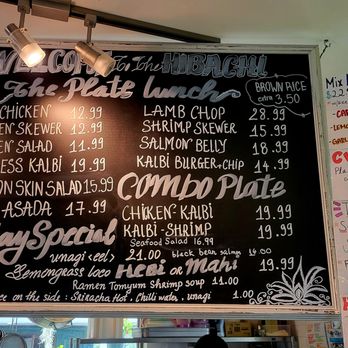 WELCOME To The HIBACHI
The Plate lunch
BROWN RICE
extra 3.50
CHICKEN 12.99
EN SKEWER 12.99
EN SALAD 11.99
ESS KALBI 19.99
ON SKIN SALAD 15.99
ASADA 17.99
LAMB CHOP 28.99
SHRIMP SKEWER 15.99
SALMON BELLY 18.99
KALBI BURGER + CHIP 14.99
COMBO Plate
CHICKEN-KALBI 19.99
KALBI-SHRIMP 19.99
Seafood Salad 16.99
ay Special
unagi <eel> 21.00 black bean salmon 14.00
Lemongrass loco HEBI or Mahi 19.99
Ramen Tomyum Shrimp soup 11.00
ce on the side: Sriracha Hot, Chilli water, unagi 1.00
Mix